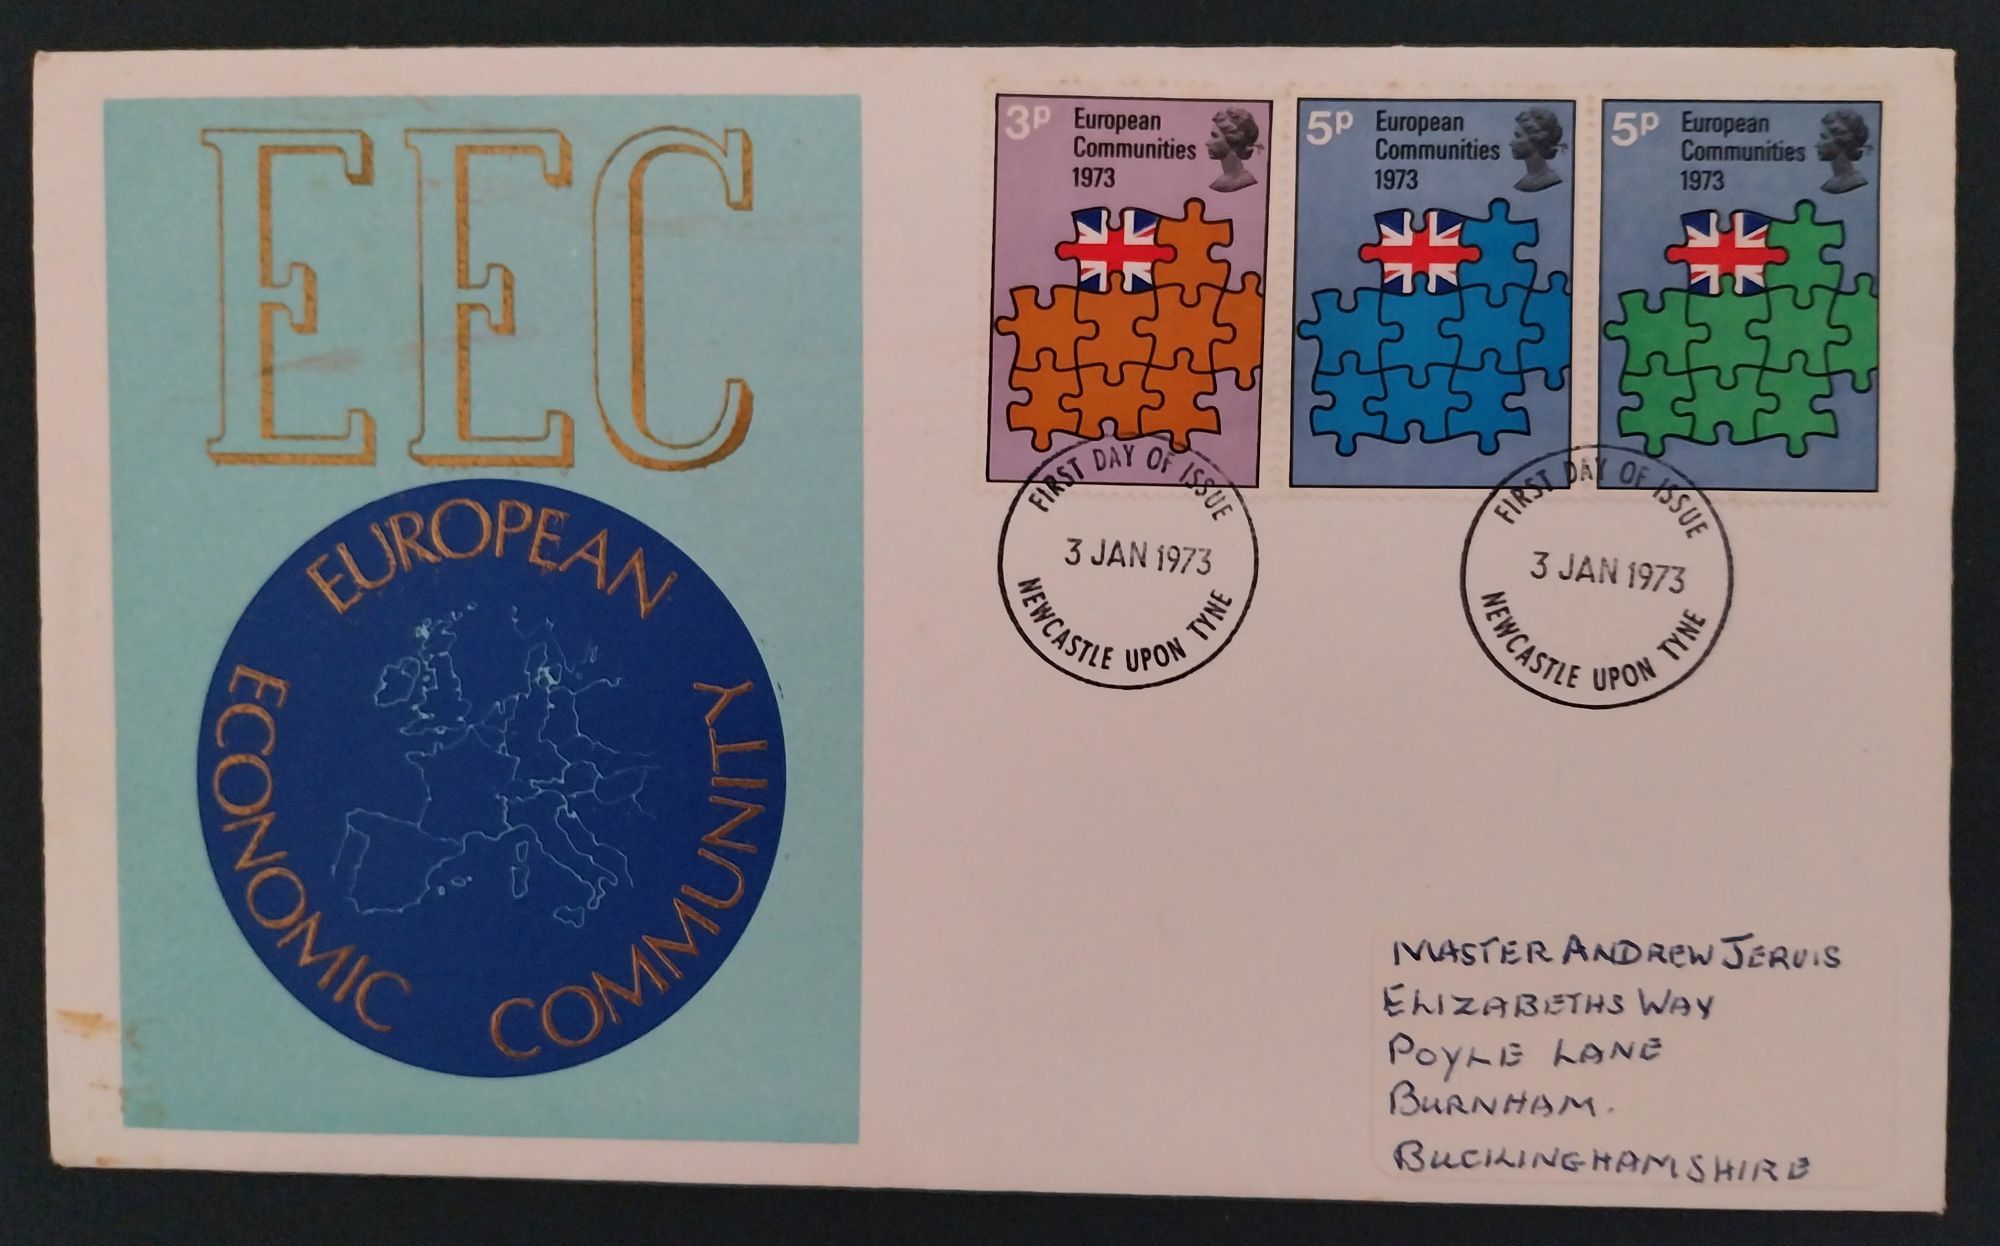 EEC
EUROPEAN
ECONOMIC
COMMUNITY
3P
European
Communities
1973
5P
European
Communities
1973
5P
European
Communities
1973
FIRST DAY OF ISSUE
3 JAN 1973
NEWCASTLE UPON TYNE
FIRST DAY OF ISSUE
3 JAN 1973
NEWCASTLE UPON TYNE
MASTER ANDREW JERVIS
ELIZABETHS WAY
POYLE LANE
BURNHAM.
BUCKINGHAMSHIRE